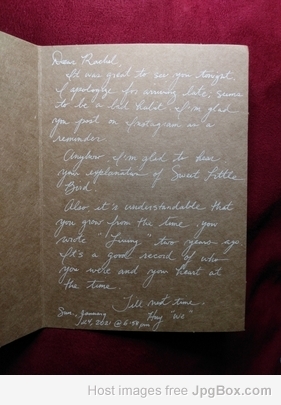 Dear Rachel,
It was great to see you tonight.
I apologize for arriving late, seems
to be a bad habit. I'm glad
you post on Instagram as a
reminder.
Anyhow I'm glad to hear
your explanation of Sweet Little
Bird.
Also it is understandable that
you grow from the time you
wrote "Living" two years ago.
It's a good record of who
you were and your heart at
the time.
Till next time,
Sun, January
2021 @ 6:58 pm
Host images free JpgBox.com